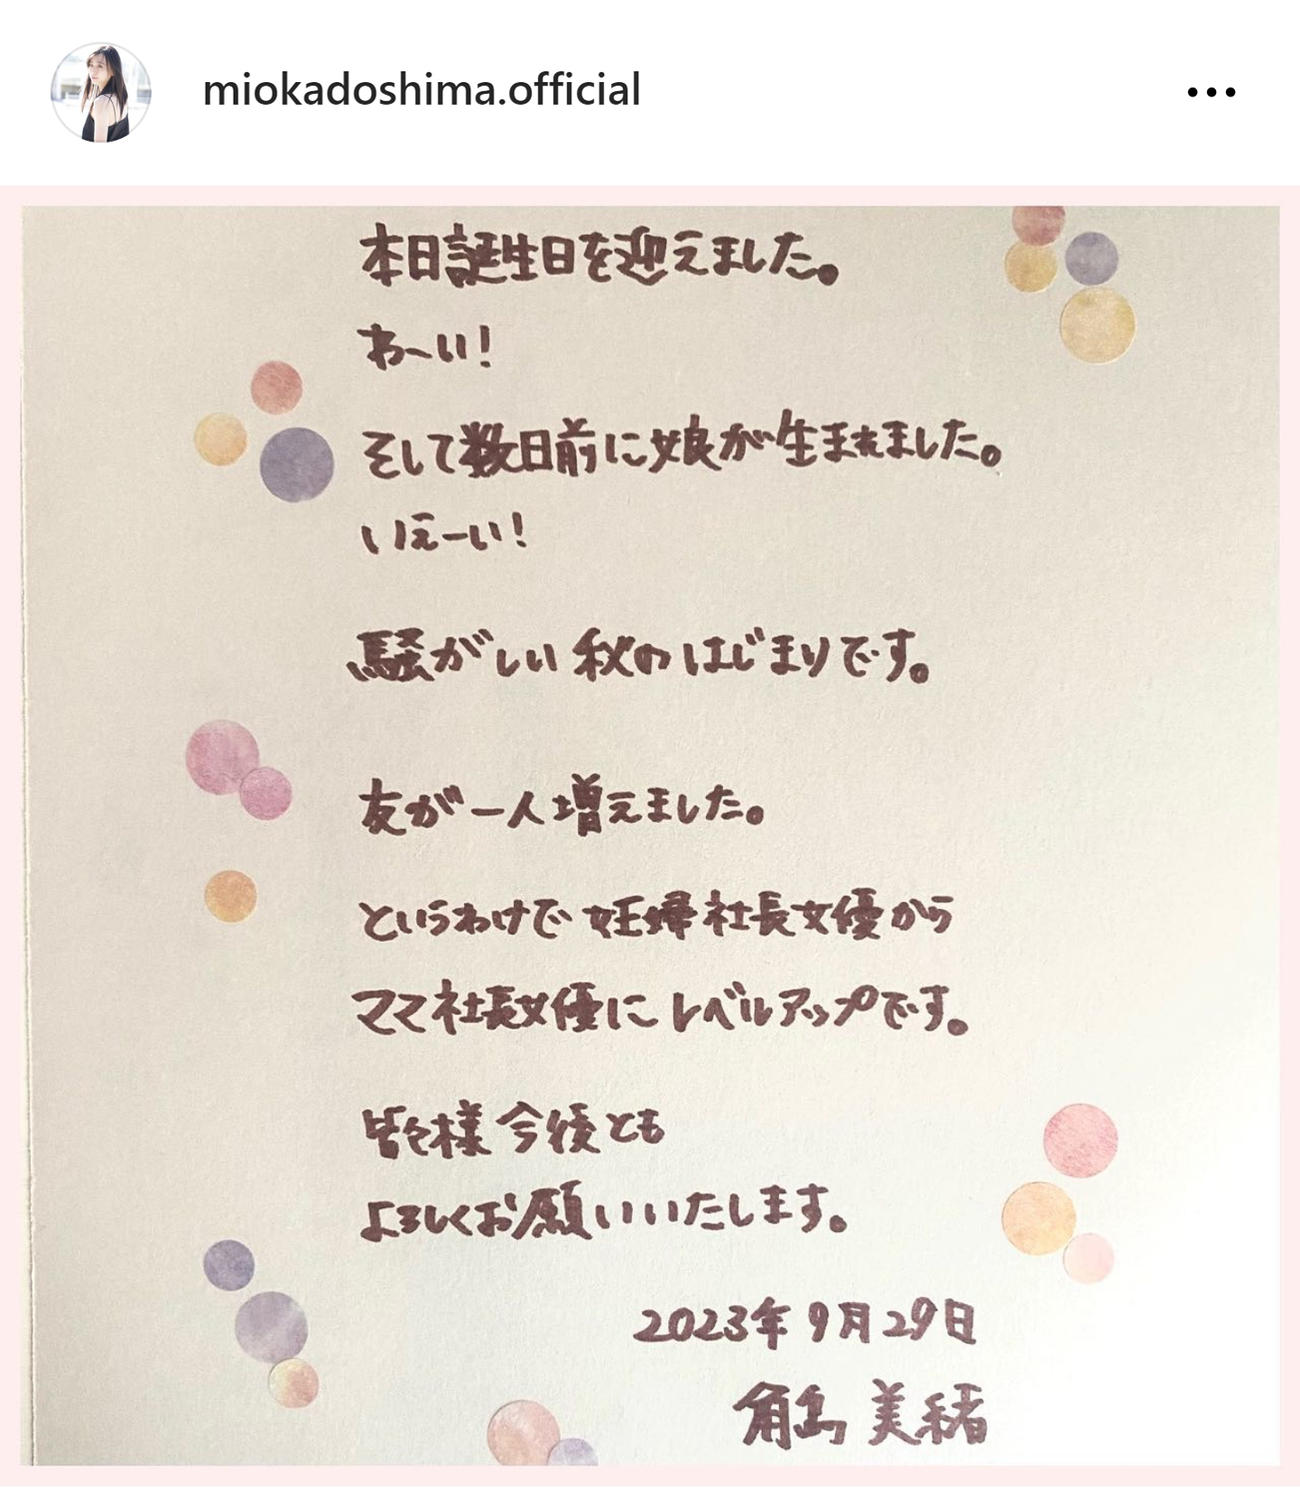 miokadoshima.official
本日誕生日を迎えました。
わーい!
そして数日前に娘が生まれました。
いえーい!
騒がしい秋のはじまりです。
友が一人増えました。
というわけで妊婦社長女優から
ママ社長女優にレベルアップです。
皆々様今後とも
よろしくお願いいたします。
2023年9月29日
角島美緒